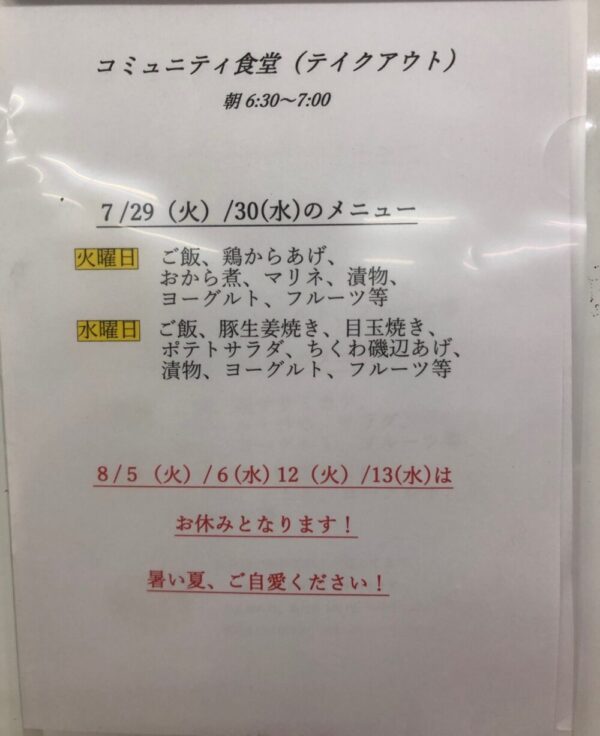 コミュニティ食堂（テイクアウト）
朝 6:30～7:00
7/29（火）/30(水)のメニュー
火曜日 ご飯、鶏からあげ、
おから煮、マリネ、漬物、
ヨーグルト、フルーツ等
水曜日 ご飯、豚生姜焼き、目玉焼き、
ポテトサラダ、ちくわ磯辺あげ、
漬物、ヨーグルト、フルーツ等
8/5（火）/6(水) 12（火）/13(水)は
お休みとなります！
暑い夏、ご自愛ください！